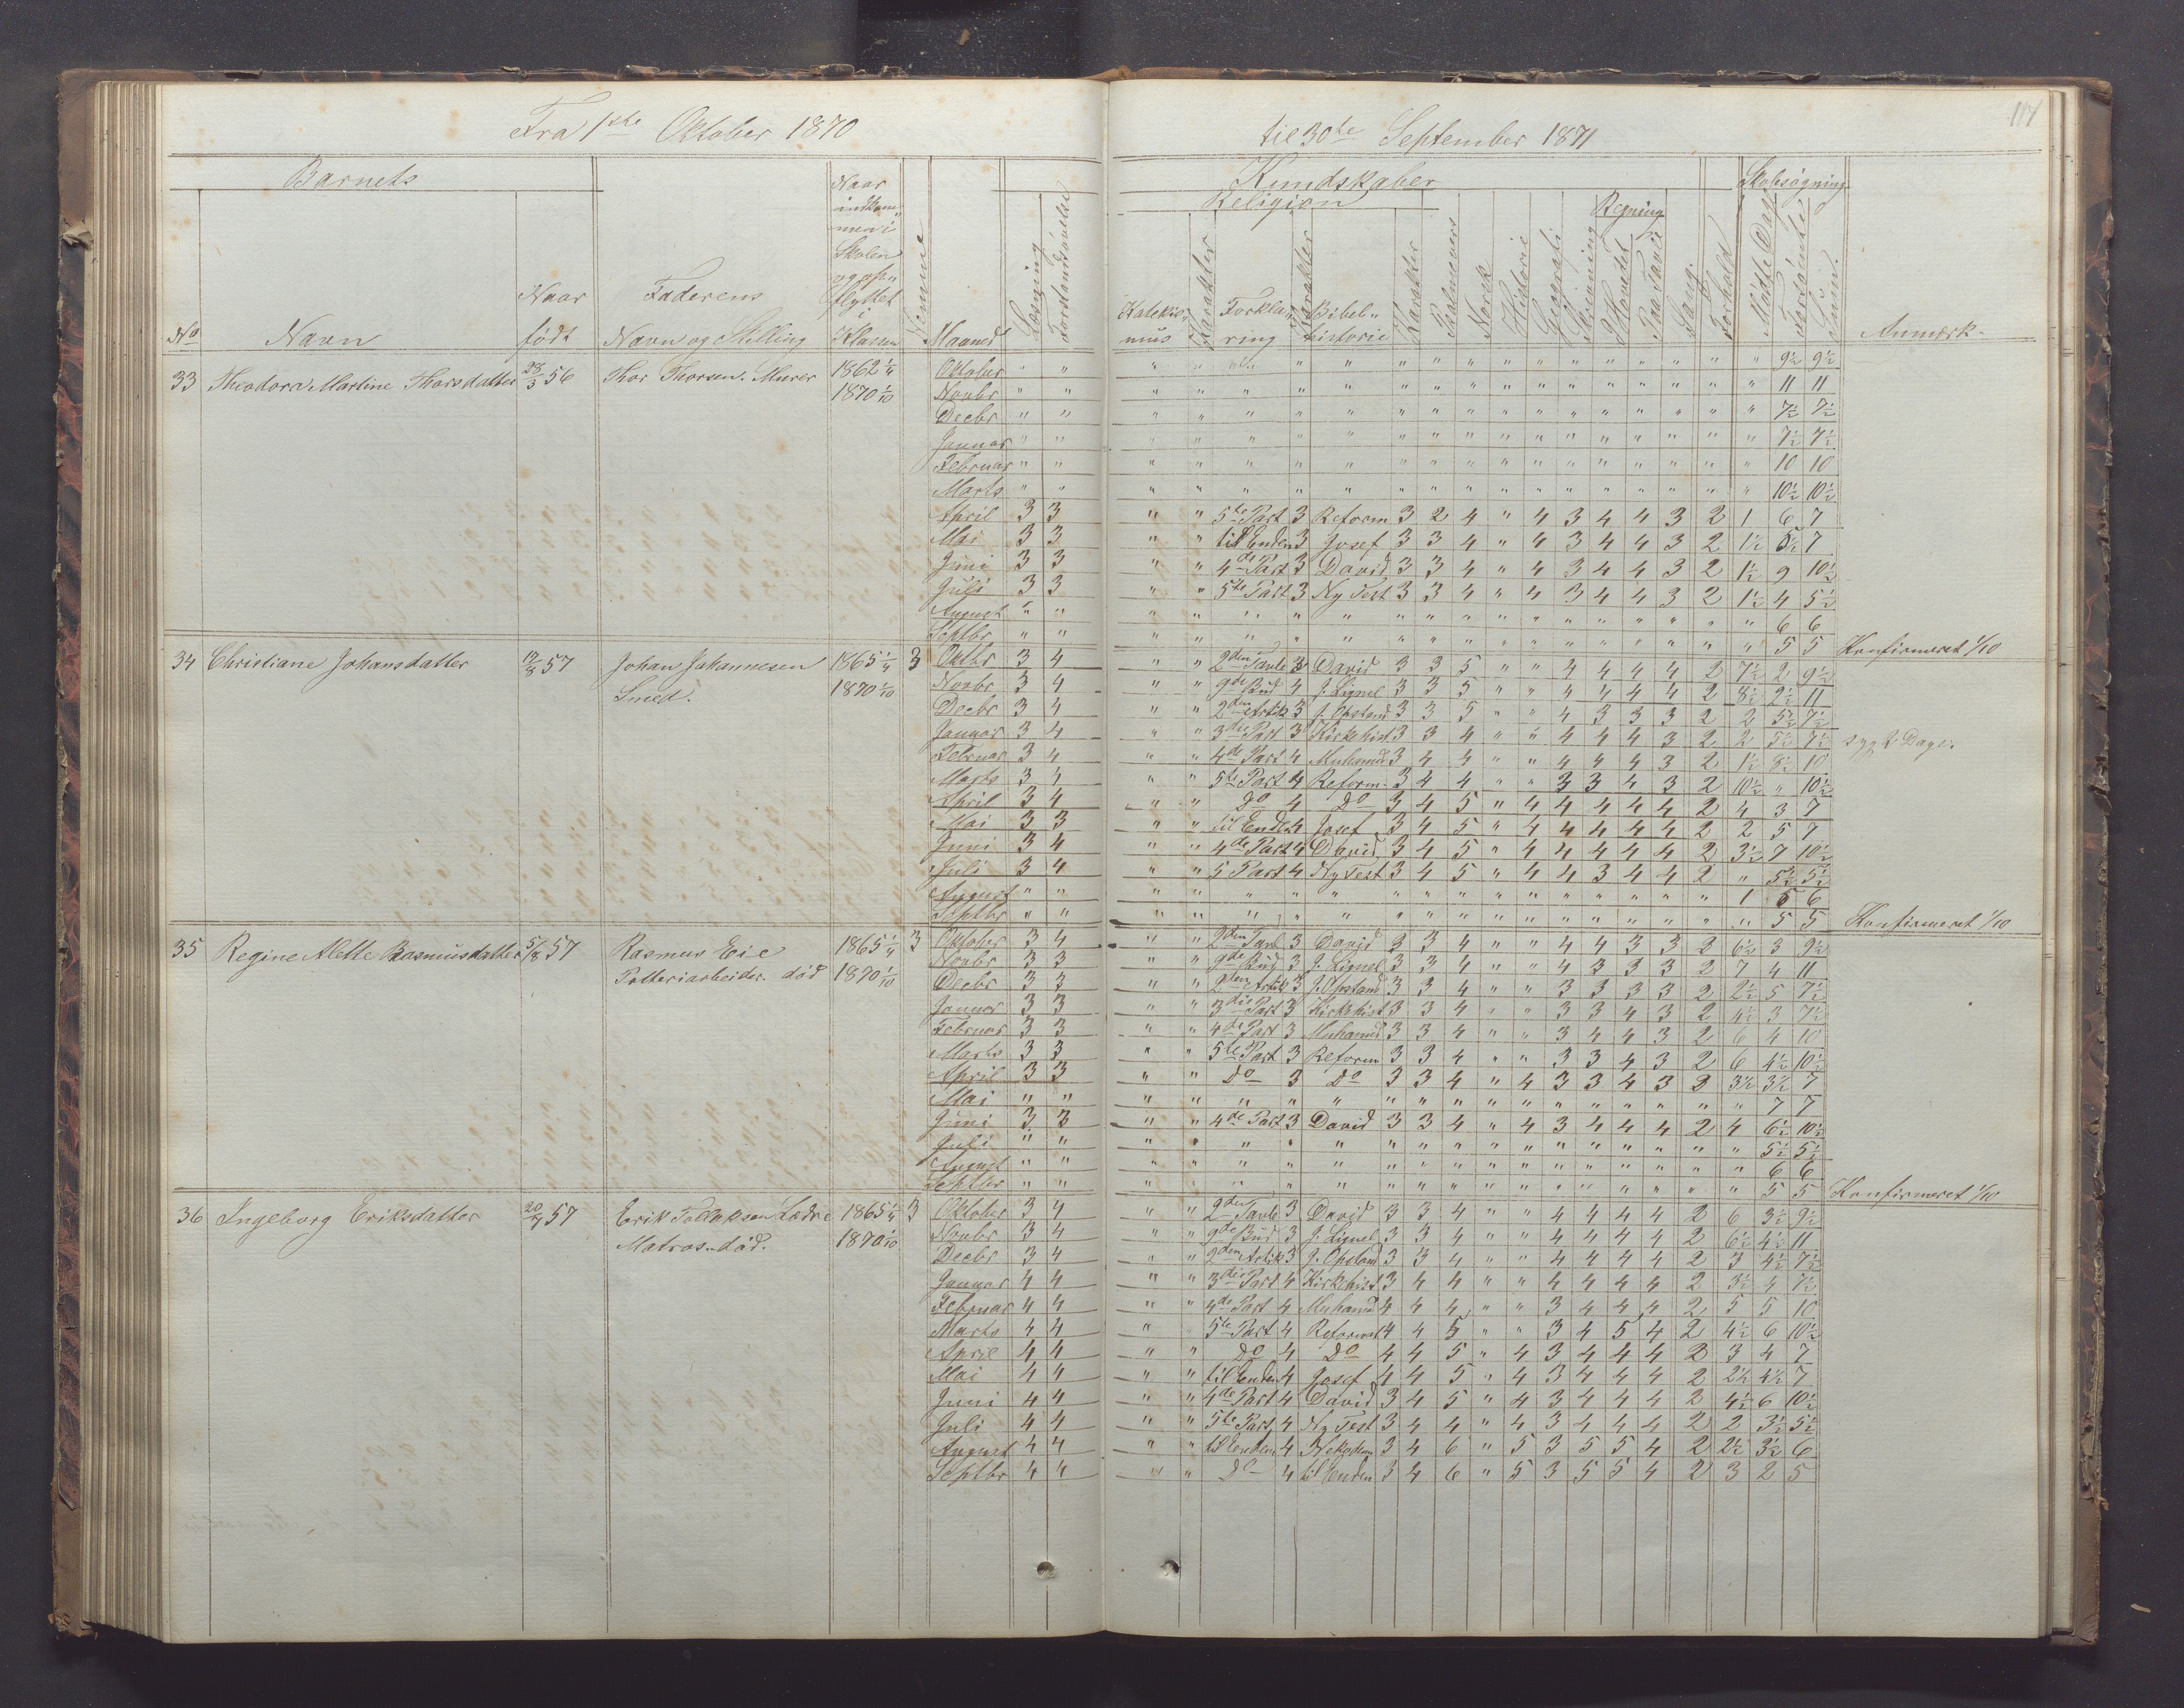 Fra 1ste Oktober 1870 til 30te September 1871
117
Barnets
No Navn Naar født
Faderens Navn og Stilling
Naar indkommen i Skolen og opflyttet i Klassen
Nemme
Maaned
Læsning
Forstandsøvelse
Kundskaber
Religion
Katekismus Karakter Forklaring Karakter Bibelhistorie Karakter
Psalmevers Norsk Historie Geografi Skrivning
Regning
I Hovedet Paa Tavle
Sang Forhold
Skolesøgning
Mødte Dage Forsømte Sum
Anmærk.
33 Theodora Martine Thorsdatter 28/3 56 Thor Thorsen. Murer 1862 1/4 Oktober " " " " " " " " " " " " " " " " " " " 9½ 9½
1870 1/10 Novbr " " " " " " " " " " " " " " " " " " " 11 11
Decbr " " " " " " " " " " " " " " " " " " " 7½ 7½
Januar " " " " " " " " " " " " " " " " " " " 7½ 7½
Februar " " " " " " " " " " " " " " " " " " " 10 10
Marts " " " " " " " " " " " " " " " " " " " 10½ 10½
April 3 3 " " 5te Part 3 Reform 3 2 4 " 4 3 4 4 3 2 1 6 7
Mai 3 3 " " til Enden 3 Josef 3 3 4 " 4 3 4 4 3 2 1½ 5½ 7
Juni 3 3 " " 4de Part 3 David 3 3 4 " 4 3 4 4 3 2 1½ 9 10½
Juli 3 3 " " 5te Part 3 Ny Test 3 3 4 " 4 3 4 4 3 2 1½ 4 5½
August " " " " " " " " " " " " " " " " " " " 6 6
Septbr " " " " " " " " " " " " " " " " " " " 5 5 Konfirmeret 1/10
34 Christiane Johansdatter 17/8 57 Johan Johannesen 1865 1/4 3 Oktbr 3 4 " " 2den Tavle 3 David 3 3 5 " " 4 4 4 4 2 7½ 2 9½
Smed. 1870 1/10 Novbr 3 4 " " 9de Bud 4 J. Lignel 3 3 5 " " 4 4 4 4 2 8½ 2½ 11
Decbr 3 4 " " 2den Artik 3 J. Opstand 3 3 5 " " 4 3 3 3 2 2 5½ 7½
Januar 3 4 " " 3die Part 3 Kirkehist 3 3 4 " " 4 4 4 3 2 2 5½ 7½ syg 2 Dage.
Februar 3 4 " " 4de Part 4 Muhamed 3 4 4 " " 4 4 4 3 2 1½ 8½ 10
Marts 3 4 " " 5te Part 4 Reform. 3 4 4 " " 3 3 4 3 2 10½ " 10½
April 3 4 " " Do 4 Do 3 4 5 " 4 4 4 4 4 2 4 3 7
Mai 3 3 " " til Enden 4 Josef 3 4 5 " 4 4 4 4 4 2 2 5 7
Juni 3 4 " " 4de Part 4 David 3 4 5 " 4 4 4 4 4 2 3½ 7 10½
Juli 3 4 " " 5 Part 4 Ny Test 3 4 5 " 4 4 3 4 4 2 " 5½ 5½
August " " " " " " " " " " " " " " " " " " 1 5 6
Septbr " " " " " " " " " " " " " " " " " " " 5 5 Konfirmeret 1/10
35 Regine Alette Rasmusdatter 5/8 57 Rasmus Eie 1865 1/4 3 Oktober 3 4 " " 2den Tavl 3 David 3 3 4 " " 4 4 3 3 2 6½ 3 9½
Potteriarbeider. død 1870 1/10 Novbr 3 3 " " 9de Bud 3 J. Lignel 3 3 4 " " 4 3 3 3 2 7 4 11
Decbr 3 3 " " 2den Artik 3 J. Opstand 3 3 4 " " 3 3 3 3 2 2½ 5 7½
Januar 3 3 " " 3die Part 3 Kirkehist 3 3 4 " " 3 3 4 3 2 4½ 3 7½
Februar 3 3 " " 4de Part 3 Muhamed 3 3 4 " " 3 4 4 3 2 6 4 10
Marts 3 3 " " 5te Part 3 Reform 3 3 4 " " 3 3 4 3 2 6 4½ 10½
April 3 3 " " Do 3 Do 3 3 4 " 4 3 3 4 3 2 3½ 3½ 7
Mai " " " " " " " " " " " " " " " " " " " 7 7
Juni 3 3 " " 4de Part 3 David 3 3 4 " 4 3 4 4 4 2 4 6½ 10½
Juli " " " " " " " " " " " " " " " " " " " 5½ 5½
August " " " " " " " " " " " " " " " " " " " 6 6
Septbr " " " " " " " " " " " " " " " " " " " 5 5 Konfirmeret 1/10
36 Ingeborg Eriksdatter 20/7 57 Erik 1865 1/4 3 Oktober 3 4 " " 2den Tavle 3 David 3 3 4 " " 4 4 4 4 2 6 3½ 9½
Matros. død. 1870 1/10 Novbr 3 4 " " 9de Bud 3 J. Lignel 3 3 4 " " 4 4 4 4 2 6½ 4½ 11
Decbr 3 4 " " 2den Artik 3 J. Opstand 3 3 4 " " 4 4 4 4 2 3 4½ 7½
Januar 4 4 " " 3die Part 4 Kirkehist 3 4 4 " " 4 4 4 4 2 3½ 4 7½
Februar 4 4 " " 4de Part 4 Muhamed 4 4 4 " " 3 4 4 4 2 5 5 10
Marts 4 4 " " 5te Part 4 Reformat 4 4 5 " " 3 4 5 4 2 4½ 6 10½
April 4 4 " " Do 4 Do 4 4 5 " 4 3 4 4 4 2 3 4 7
Mai 4 4 " " til Enden 4 Josef 4 4 5 " 4 3 4 4 4 2 2½ 4½ 7
Juni 4 4 " " 4de Part 4 David 3 4 5 " 4 3 4 4 4 2 4½ 6 10½
Juli 4 4 " " 5te Part 4 Ny Test 3 4 4 " 4 3 4 4 4 2 2 3½ 5½
August 4 4 " " til Enden 4 Nekodem 3 4 6 " 5 3 5 5 4 2 2½ 3½ 6
Septbr 4 4 " " Do 4 til Enden 3 4 6 " 5 3 5 5 4 2 3 2 5